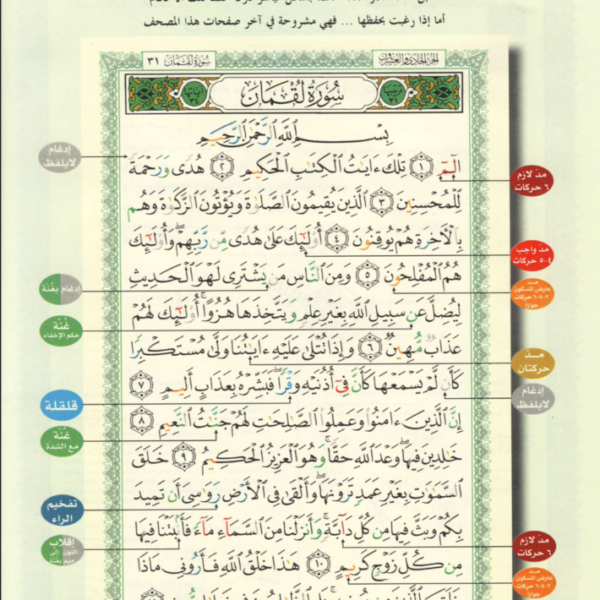 أما إذا رغبت بحفظها ... فهي مشروحة في آخر صفحات هذا المصحف
الجزء الحادي والعشرون
سورة لقمان ٣١
سُورَةُ لُقْمَان
بِسْمِ اللَّهِ الرَّحْمَٰنِ الرَّحِيمِ
الٓمٓ ١ تِلْكَ ءَايَٰتُ الْكِتَٰبِ الْحَكِيمِ ٢ هُدًى وَرَحْمَةً
لِّلْمُحْسِنِينَ ٣ الَّذِينَ يُقِيمُونَ الصَّلَوٰةَ وَيُؤْتُونَ الزَّكَوٰةَ وَهُم
بِالْءَاخِرَةِ هُمْ يُوقِنُونَ ٤ أُولَٰٓئِكَ عَلَىٰ هُدًى مِّن رَّبِّهِمْ وَأُولَٰٓئِكَ
هُمُ الْمُفْلِحُونَ ٥ وَمِنَ النَّاسِ مَن يَشْتَرِى لَهْوَ الْحَدِيثِ
لِيُضِلَّ عَن سَبِيلِ اللَّهِ بِغَيْرِ عِلْمٍ وَيَتَّخِذَهَا هُزُوًا أُولَٰٓئِكَ لَهُمْ
عَذَابٌ مُّهِينٌ ٦ وَإِذَا تُتْلَىٰ عَلَيْهِ ءَايَٰتُنَا وَلَّىٰ مُسْتَكْبِرًا
كَأَن لَّمْ يَسْمَعْهَا كَأَنَّ فِىٓ أُذُنَيْهِ وَقْرًا فَبَشِّرْهُ بِعَذَابٍ أَلِيمٍ ٧
إِنَّ الَّذِينَ ءَامَنُوا وَعَمِلُوا الصَّٰلِحَٰتِ لَهُمْ جَنَّٰتُ النَّعِيمِ ٨
خَٰلِدِينَ فِيهَا وَعْدَ اللَّهِ حَقًّا وَهُوَ الْعَزِيزُ الْحَكِيمُ ٩ خَلَقَ
السَّمَٰوَٰتِ بِغَيْرِ عَمَدٍ تَرَوْنَهَا وَأَلْقَىٰ فِى الْأَرْضِ رَوَٰسِىَ أَن تَمِيدَ
بِكُمْ وَبَثَّ فِيهَا مِن كُلِّ دَآبَّةٍ وَأَنزَلْنَا مِنَ السَّمَآءِ مَآءً فَأَنۢبَتْنَا فِيهَا
مِن كُلِّ زَوْجٍ كَرِيمٍ ١٠ هَٰذَا خَلْقُ اللَّهِ فَأَرُونِى مَاذَا
مدّ لازم
٦ حركات
مدّ واجب
٤-٥ حركات
مد
عارض للسكون
٢-٤-٦ حركات
جوازاً
مدّ
حركتان
إدغام
لايلفظ
مدّ لازم
٦ حركات
مد
عارض للسكون
٢-٤-٦ حركات
إدغام
لايلفظ
إدغام بغنّة
غنّة
حكم الإخفاء
قلقلة
غنّة
مع الشدة
تفخيم
الراء
إقلاب